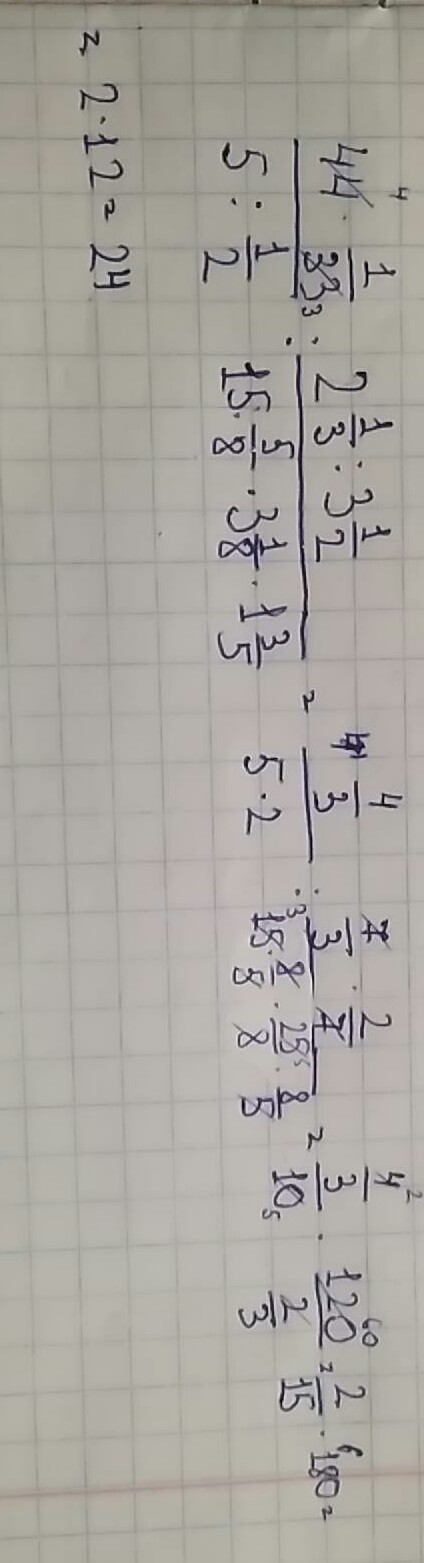 (44 · 1/33) / (5 : 1/2) : (2 1/3 : 3 1/2) / (15 · 5/8 · 3 1/8 · 1 3/5) = (4/3) / (5 · 2) : (7/3 · 2/7) / (15 · 8/5 · 25/8 · 8/5) = (4/3) / 10 · 120 / (2/3) = 2/15 · 180 =
= 2 · 12 = 24